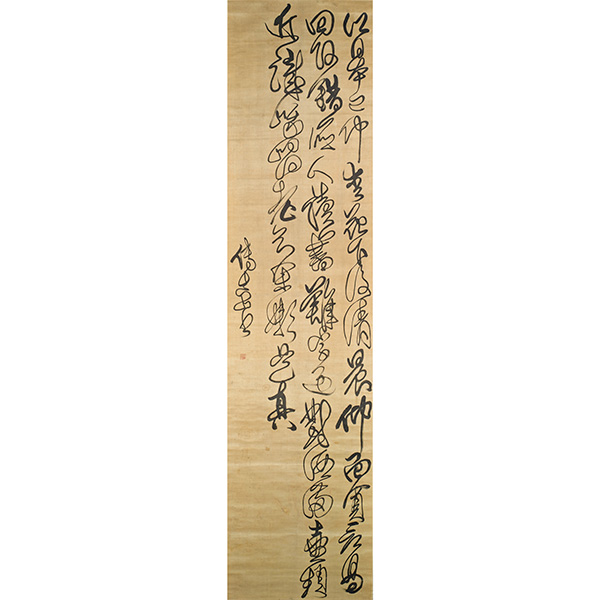 江皋已仲春花下復清晨仰面貪看鳥
回頭錯應人讀書難字過對酒滿壺頻
近識峨眉老知余懶是真
傅山書